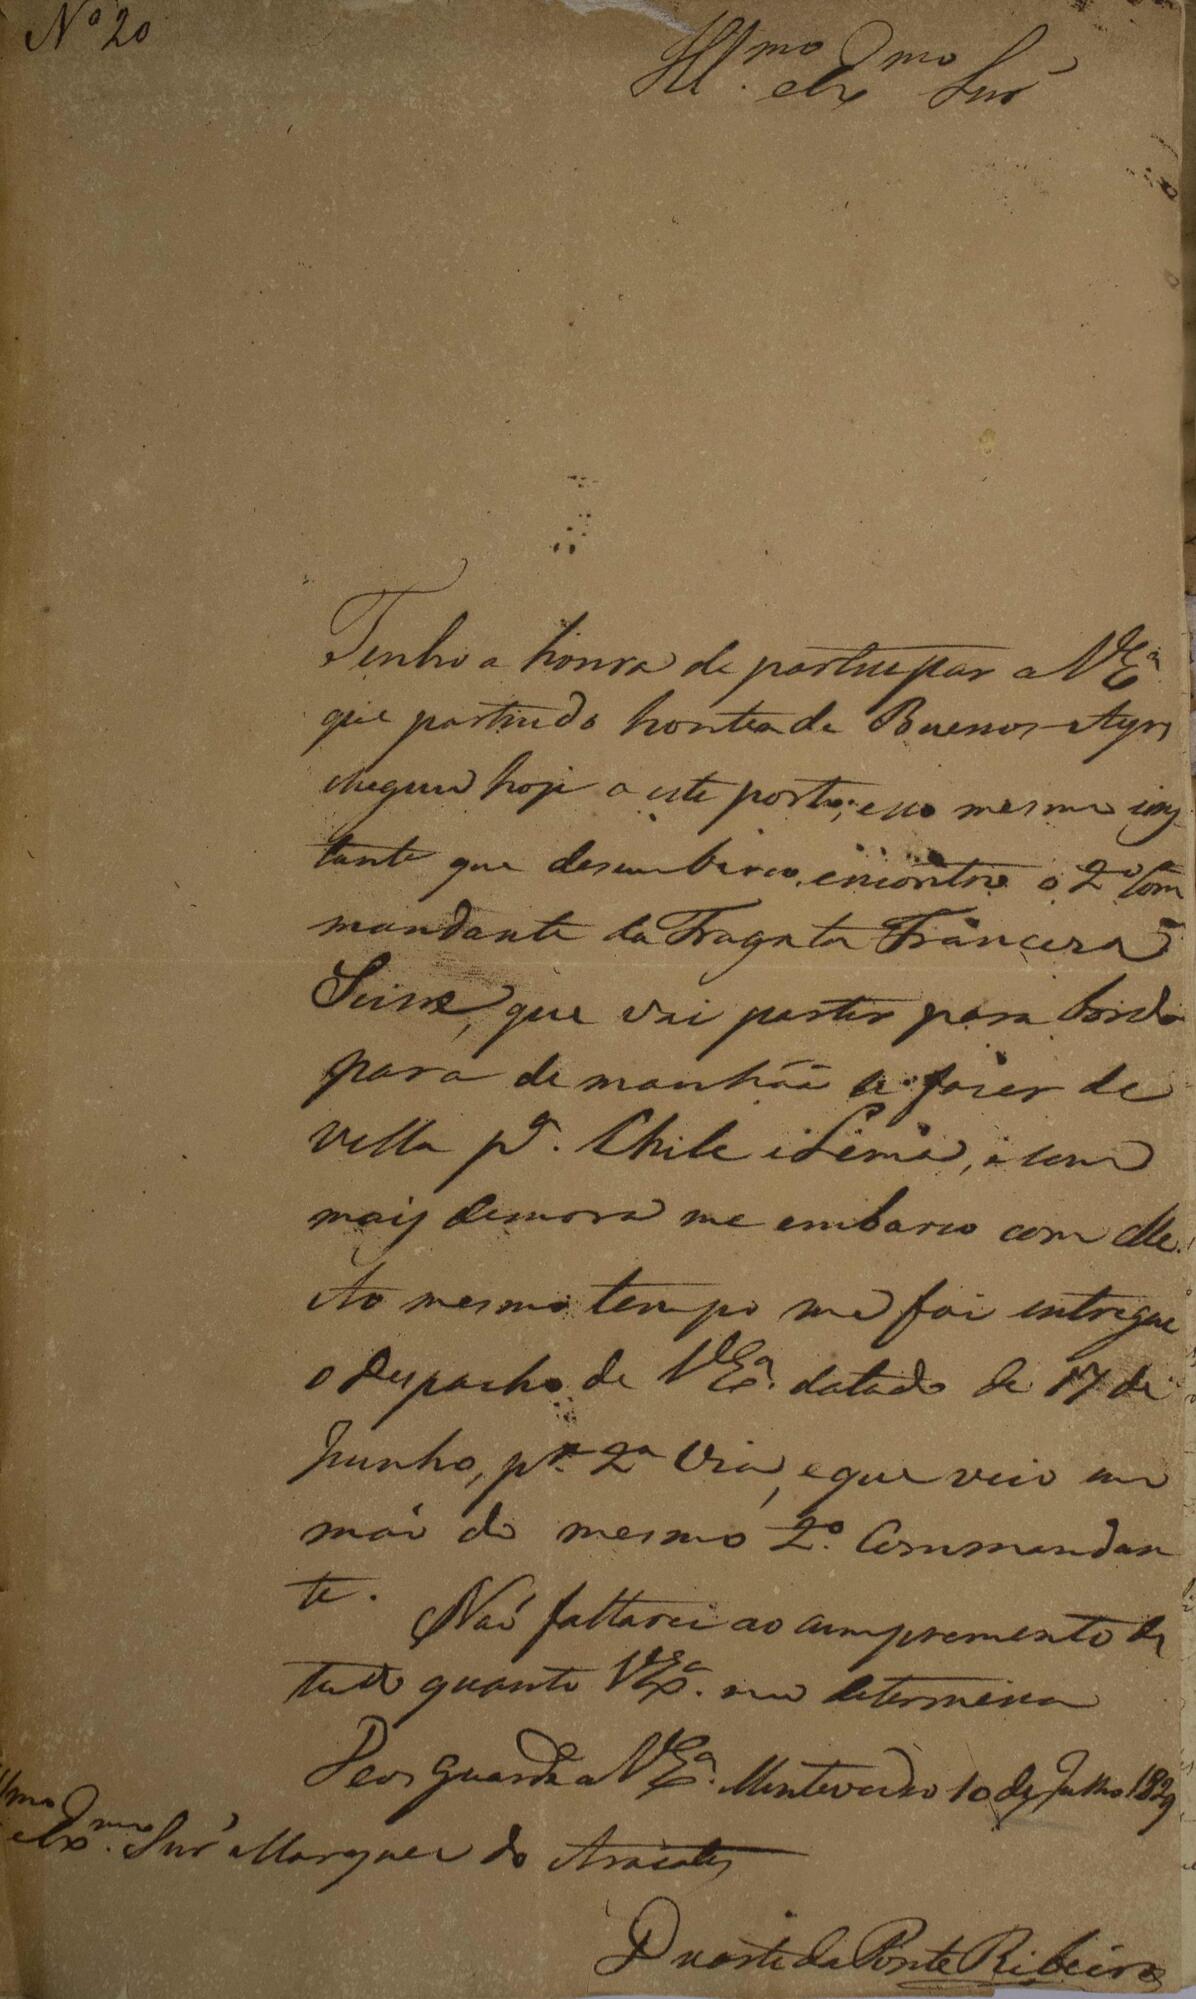 Nº 20
Illmo Exmo Snr
Tenho a honra de participar a VEª
que partindo hontem de Buenos-Ayres
cheguei hoje a este porto; e no mesmo ins
tante que desembarco, encontro o 2º Com
mandante da Fragata Francesa
que vai partir para bordo
para de manhãa se fazer de
vella pª. Chile e Lima, e sem
mais demora me embarco com elle.
Ao mesmo tempo me foi entregue
o Despacho de VEª. datado de 17 de
Junho, pr. 2ª via, e que veio em
maõ do mesmo 2º. Commandan
te.
Naõ faltarei ao cumpremento de
tudo quanto VExª. me determina
Deos guarde a VEª. Montevideo 10 de Julho 1829
Illmo Exmo. Snr Marquez do Aracaty
Duarte da Ponte Ribeiro